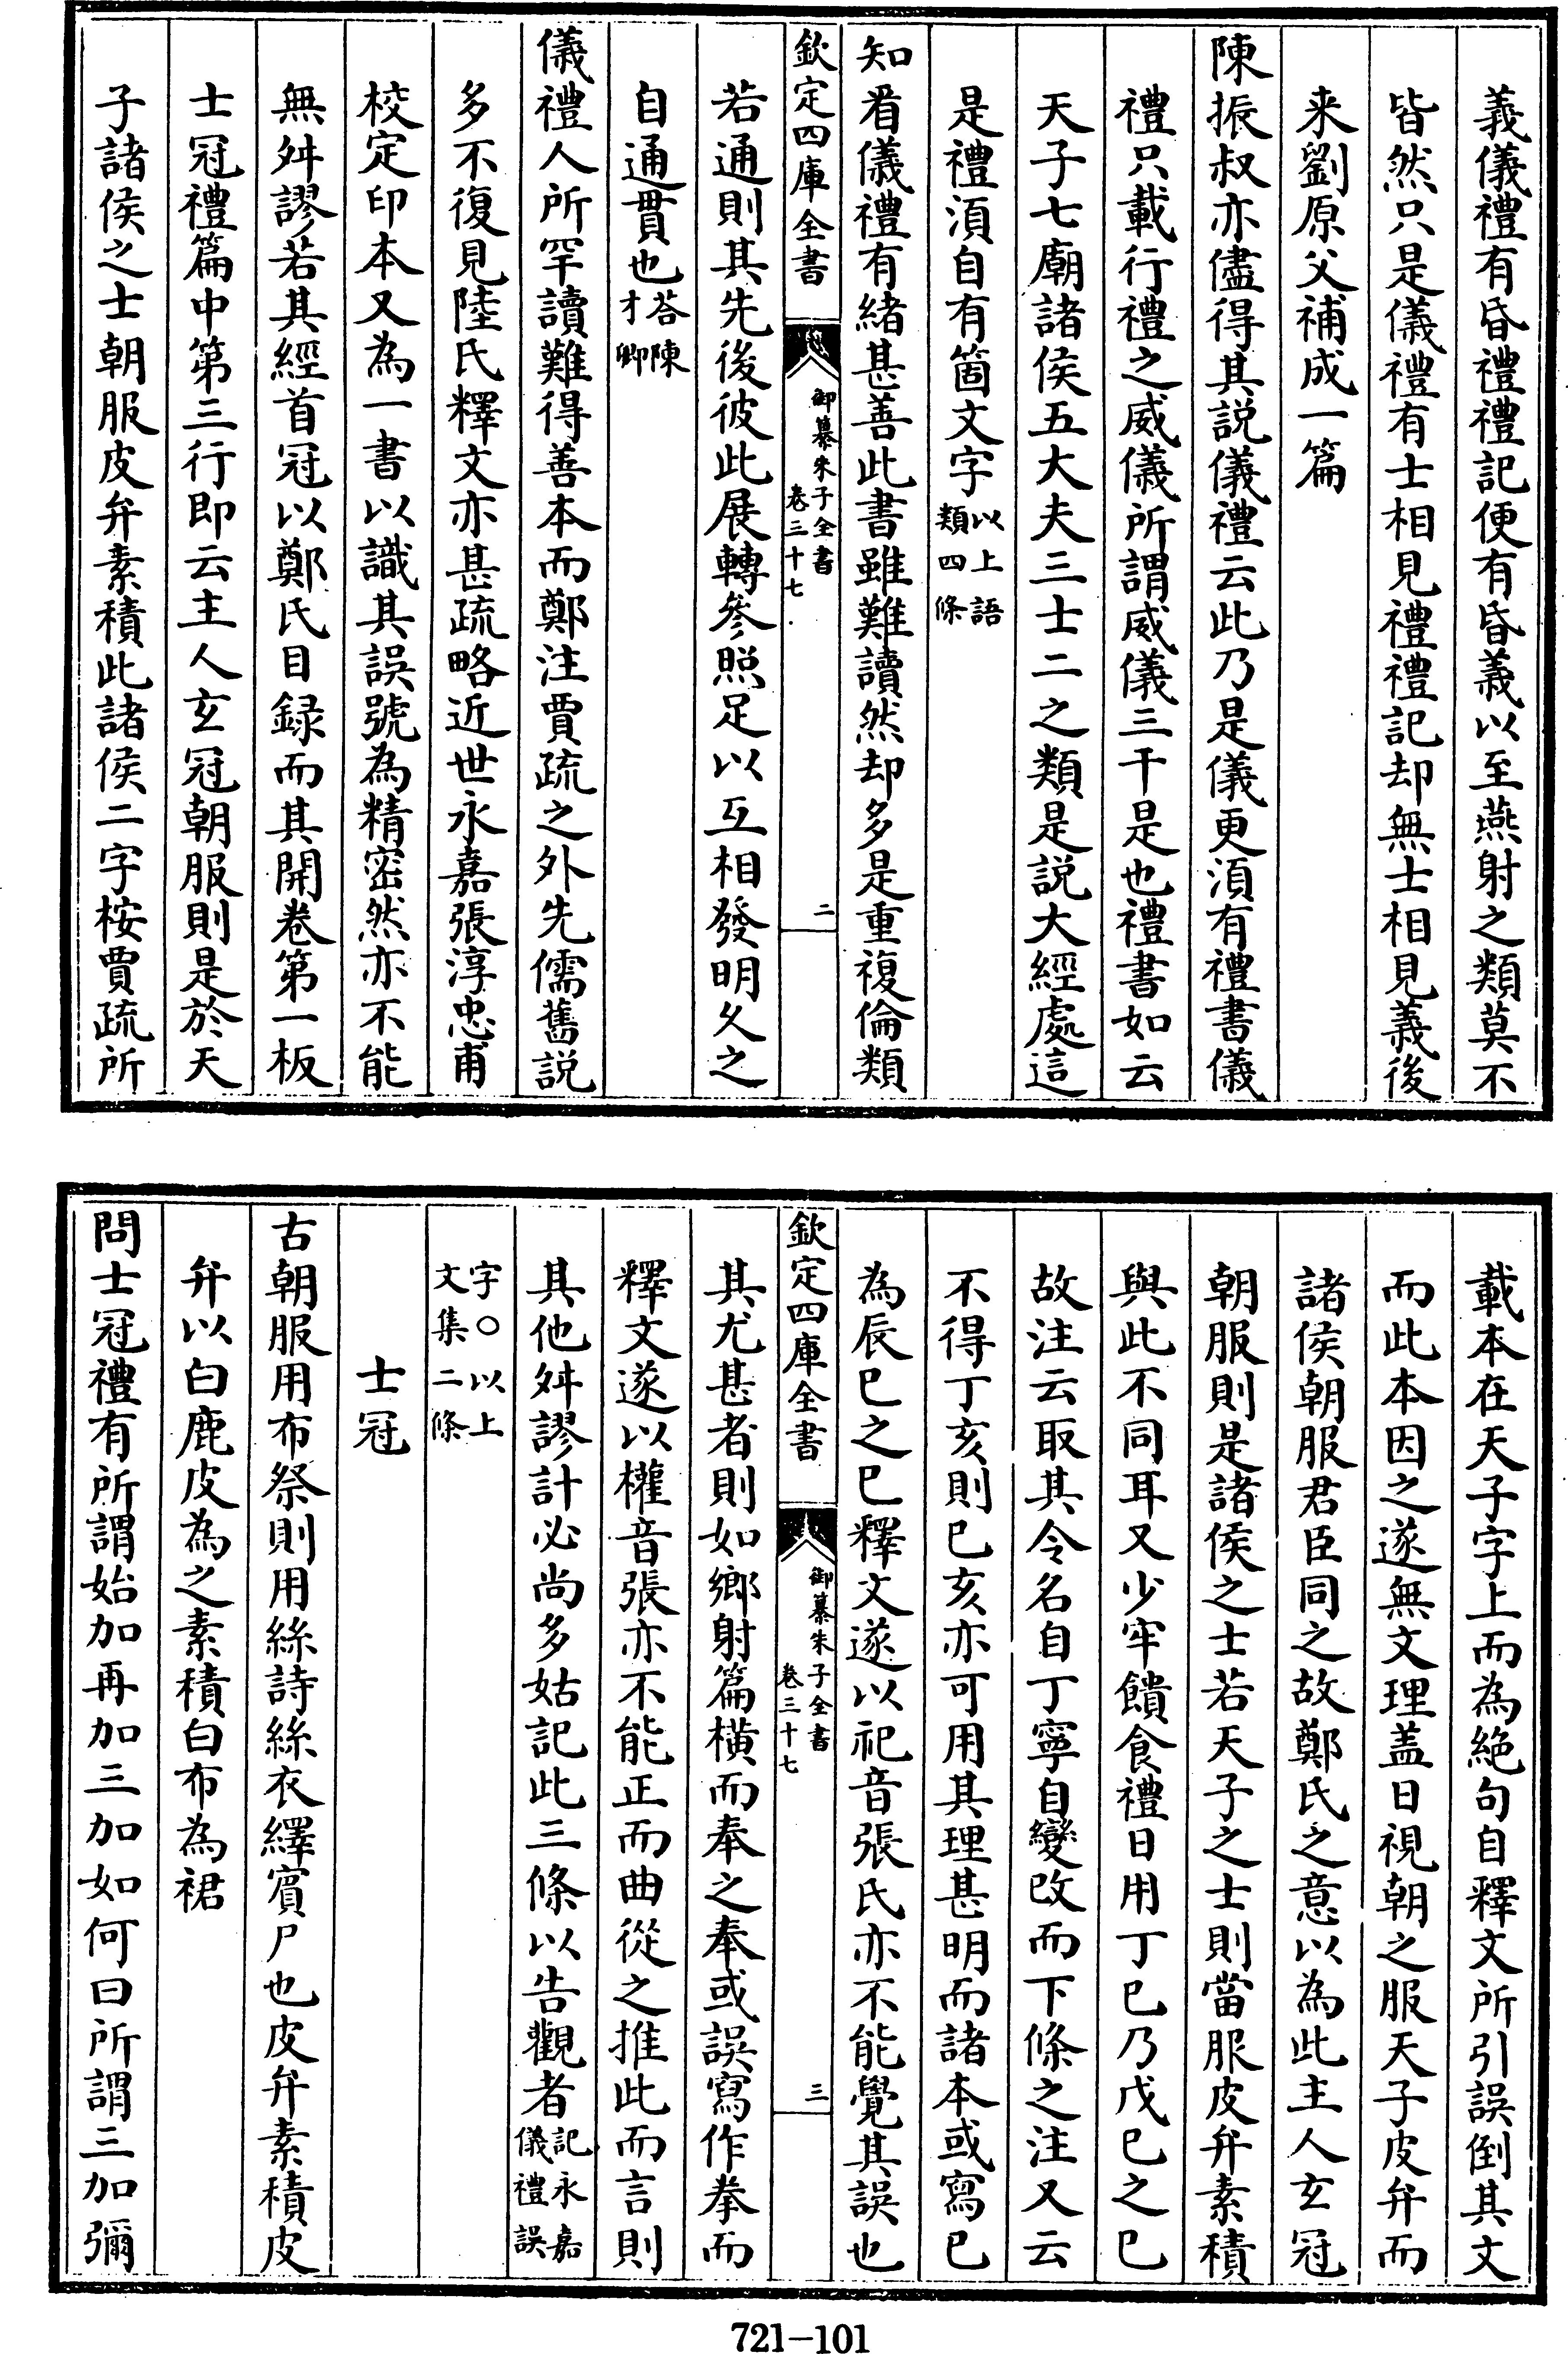 義儀禮有昏禮禮記便有昏義以至燕射之類莫不
皆然只是儀禮有士相見禮禮記却無士相見義後
来劉原父補成一篇
陳振叔亦儘得其説儀禮云此乃是儀更湏有禮書儀
禮只載行禮之威儀所謂威儀三千是也禮書如云
天子七廟諸侯五大夫三士二之類是説大經處這
是禮湏自有箇文字以上語類四條
知看儀禮有緒甚善此書雖難讀然却多是重複倫類
欽定四庫全書
御纂朱子全書
卷三十七
二
若通則其先後彼此展轉參照足以互相發明久之
自通貫也荅陳才卿
儀禮人所罕讀難得善本而鄭注賈疏之外先儒舊説
多不復見陸氏釋文亦甚疏略近世永嘉張淳忠甫
校定印本又為一書以識其誤號為精密然亦不能
無舛謬若其經首冠以鄭氏目録而其開卷第一板
士冠禮篇中第三行即云主人玄冠朝服則是於天
子諸侯之士朝服皮弁素積此諸侯二字桉賈疏所
載本在天子字上而為絶句自釋文所引誤倒其文
而此本因之遂無文理盖日視朝之服天子皮弁而
諸侯朝服君臣同之故鄭氏之意以為此主人玄冠
朝服則是諸侯之士若天子之士則當服皮弁素積
與此不同耳又少牢饋食禮日用丁巳乃戊巳之巳
故注云取其令名自丁寧自變改而下條之注又云
不得丁亥則巳亥亦可用其理甚明而諸本或寫巳
為辰巳之巳釋文遂以祀音張氏亦不能覺其誤也
欽定四庫全書
御纂朱子全書
卷三十七
三
其尤甚者則如鄉射篇横而奉之奉或誤寫作拳而
釋文遂以權音張亦不能正而曲從之推此而言則
其他舛謬計必尚多姑記此三條以告觀者記永嘉儀禮誤
字○以上文集二條
士冠
古朝服用布祭則用絲詩絲衣繹賓尸也皮弁素積皮
弁以白鹿皮為之素積白布為裙
問士冠禮有所謂始加再加三加如何曰所謂三加彌
721-101